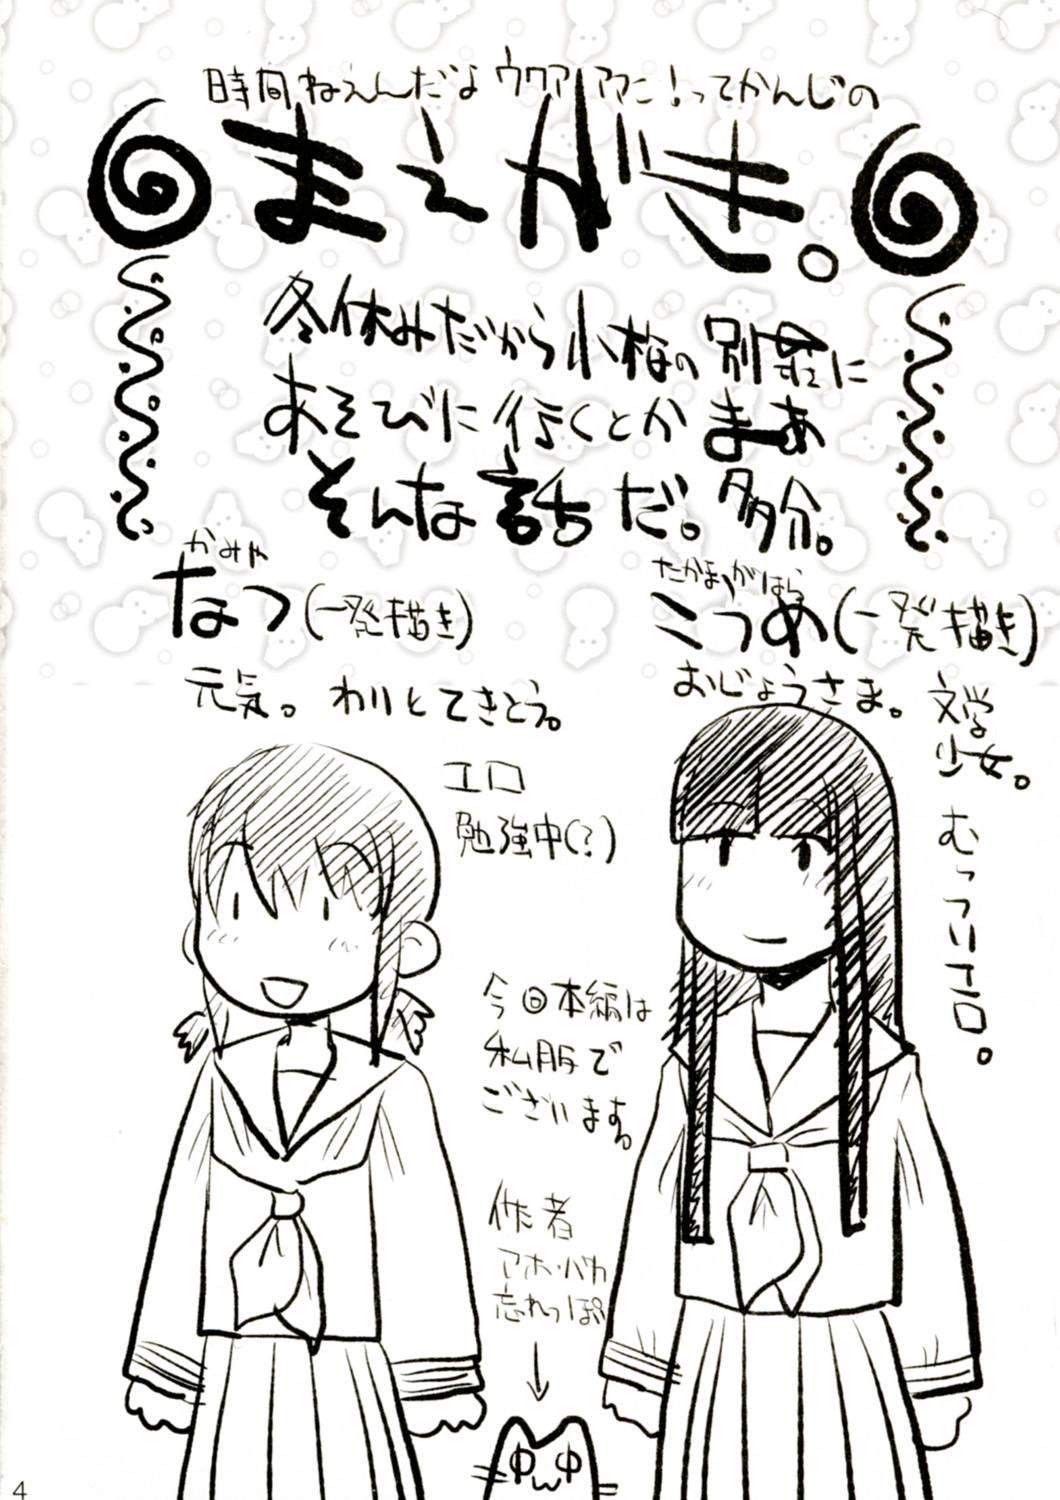 時間ねえんだよ ウワアアアン!ってかんじの
まえがき。
冬休みだから小梅の別荘に
あそびに行くとかまあ
そんな話だ。多分。
かみや
なつ(一発描き)
元気。わりとてきとう。
エロ
勉強中(?)
たかまがはら
こうめ(一発描き)
おじょうさま。文学
少女。
むっつりエロ。
今回本編は
私服で
ございます。
作者
アホ・バカ
忘れっぽい
4